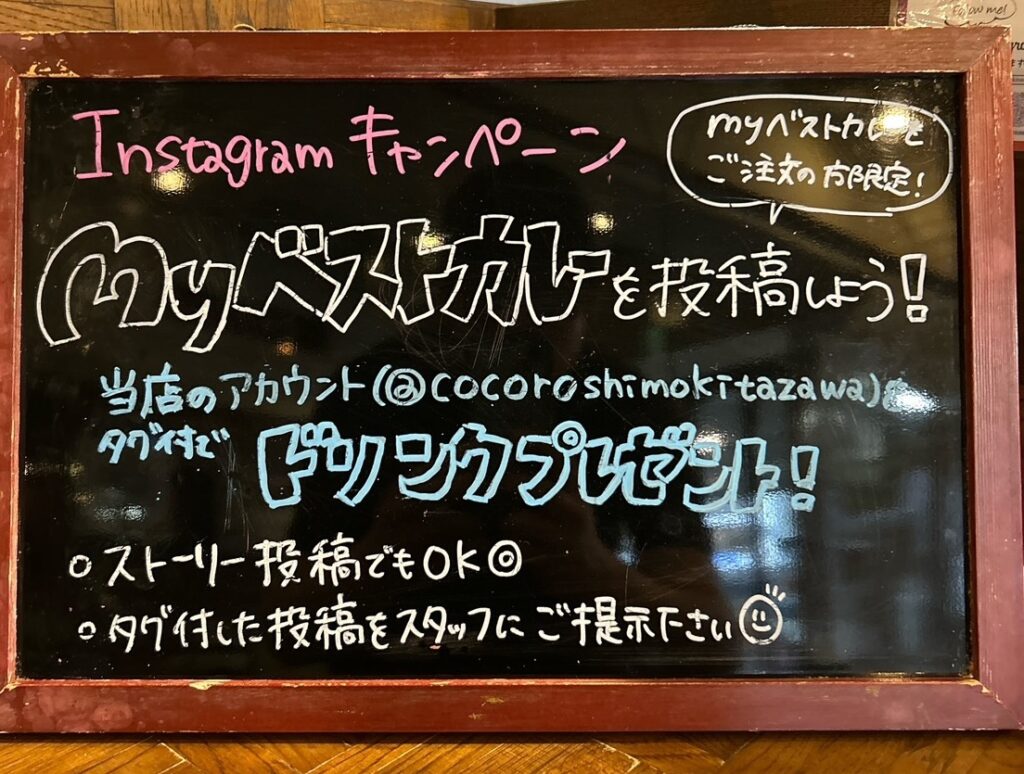 Follow me!
Instagram キャンペーン
myベストカレーを
ご注文の方限定!
myベストカレーを投稿しよう!
当店のアカウント(@cocoroshimokitazawa)を
タグ付で ドリンクプレゼント!
○ストーリー投稿でもOK◎
○タグ付した投稿をスタッフにご提示下さい